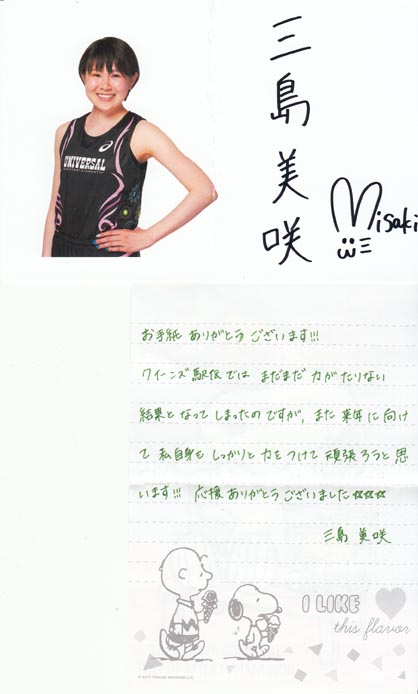 三島美咲
Misaki
UNIVERSAL
お手紙ありがとうございます!!!
クイーンズ駅伝ではまだまだ力がたりない
結果となってしまったのですが、また来年に向け
て私自身もしっかりと力をつけて頑張ろうと思
います!!! 応援ありがとうございました☆☆☆
三島美咲
I LIKE
this flavor